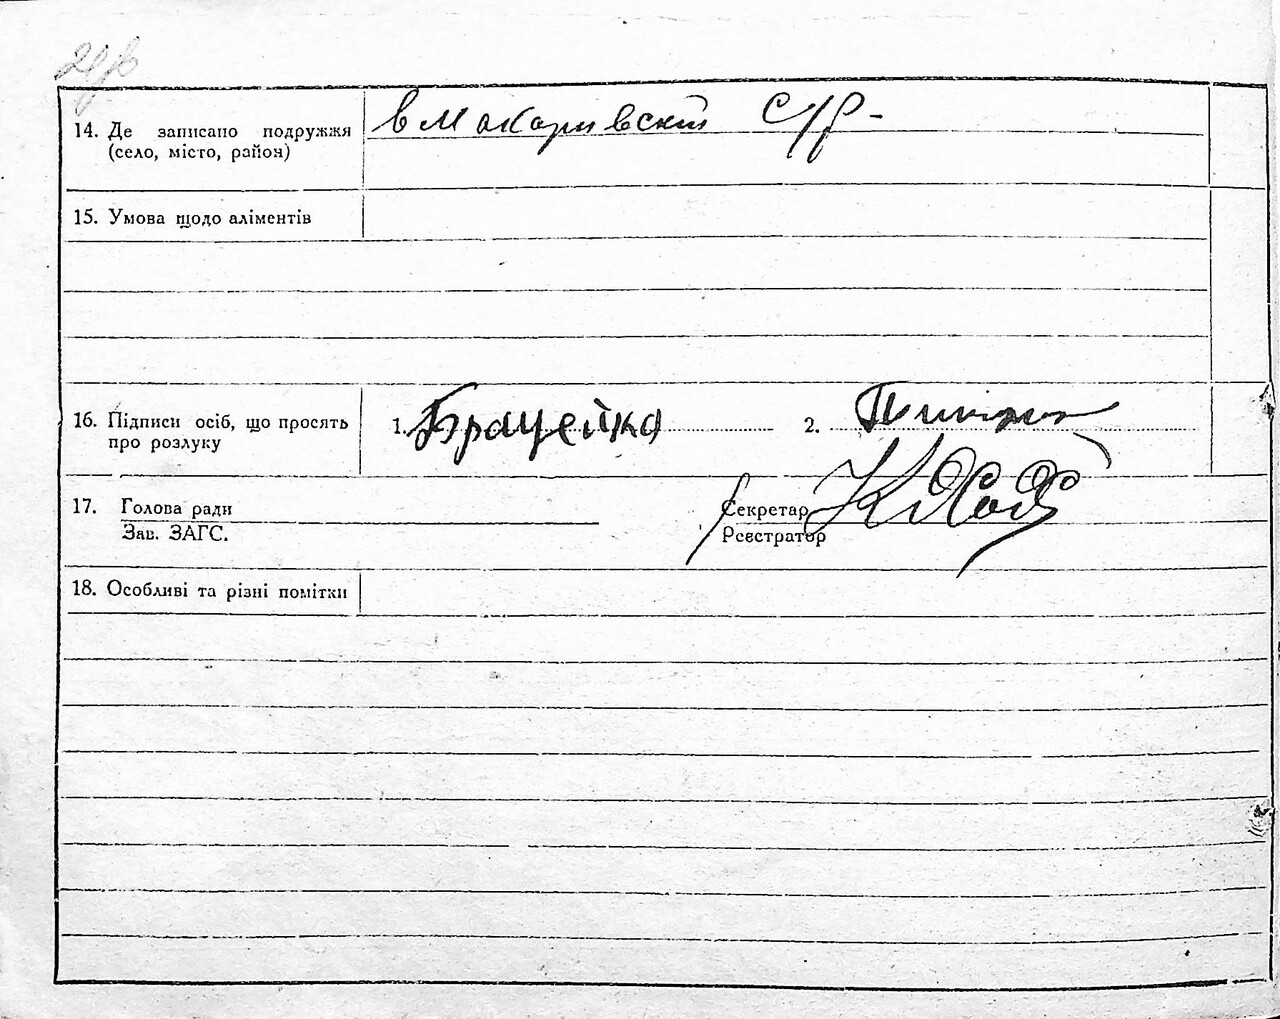 14. Де записано подружжя
(село, місто, район)
в Макарівский С/р -
15. Умова щодо аліментів
16. Підписи осіб, що просять
про розлуку
1. Брацейко 2.
17. Голова ради Секретар
Зав. ЗАГС. Реєстратор
18. Особливі та різні помітки